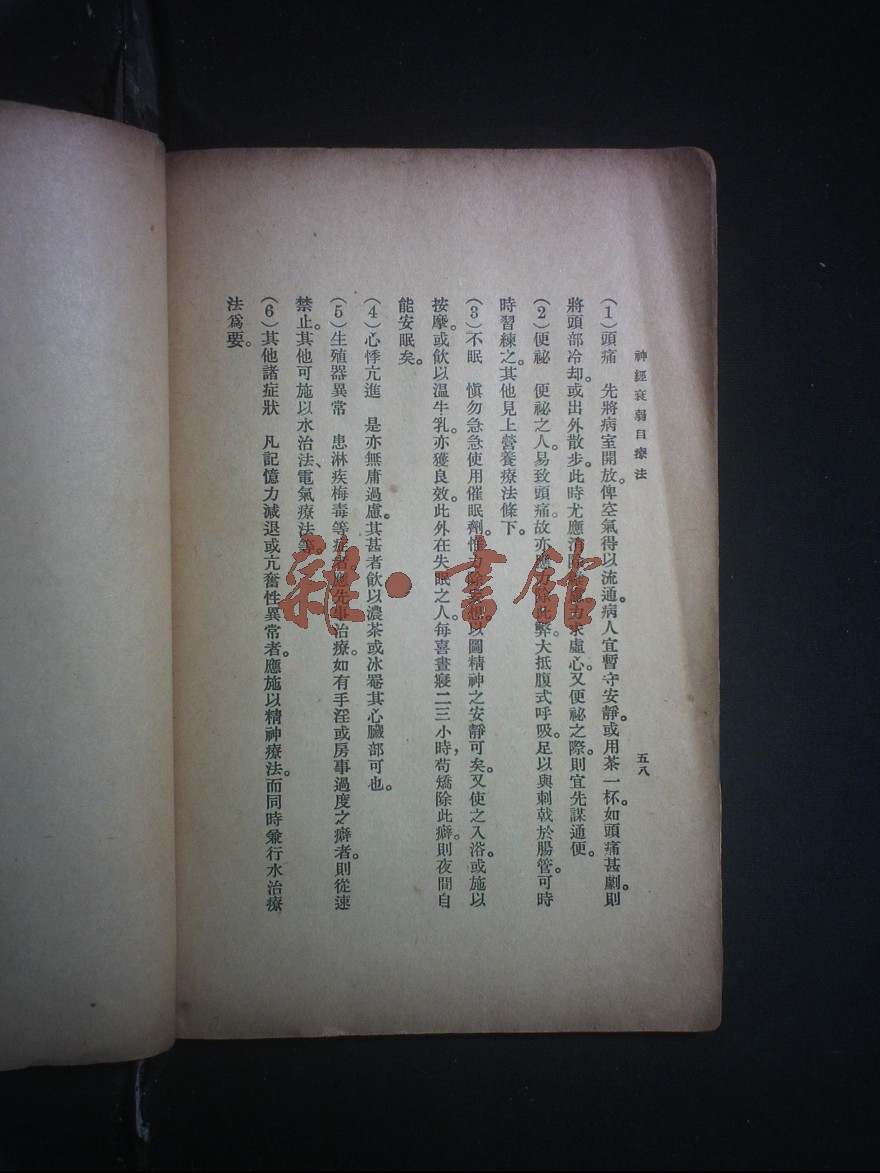 神經衰弱自療法
五八
（1）頭痛　先將病室開放。俾空氣得以流通。病人宜暫守安靜。或用茶一杯。如頭痛甚劇。則
將頭部冷却。或出外散步。此時尤應消除 力求虛心。又便祕之際。則宜先謀通便。
（2）便祕　便祕之人。易致頭痛。故亦應力除此弊。大抵腹式呼吸。足以與刺戟於腸管。可時
時習練之。其他見上營養療法條下。
（3）不眠　愼勿急急使用催眠劑。惟力除妄想。以圖精神之安靜可矣。又使之入浴。或施以
按摩。或飮以温牛乳。亦獲良效。此外在失眠之人。每喜晝寢二三小時，苟矯除此癖。則夜間自
能安眠矣。
（4）心悸亢進　是亦無庸過慮。其甚者飮以濃茶或冰罨其心臟部可也。
（5）生殖器異常　患淋疾梅毒等症者。應先事治療。如有手淫或房事過度之癖者。則從速
禁止。其他可施以水治法、電氣療法等。
（6）其他諸症狀　凡記憶力減退或亢奮性異常者。應施以精神療法。而同時兼行水治療
法爲要。
雜·書館